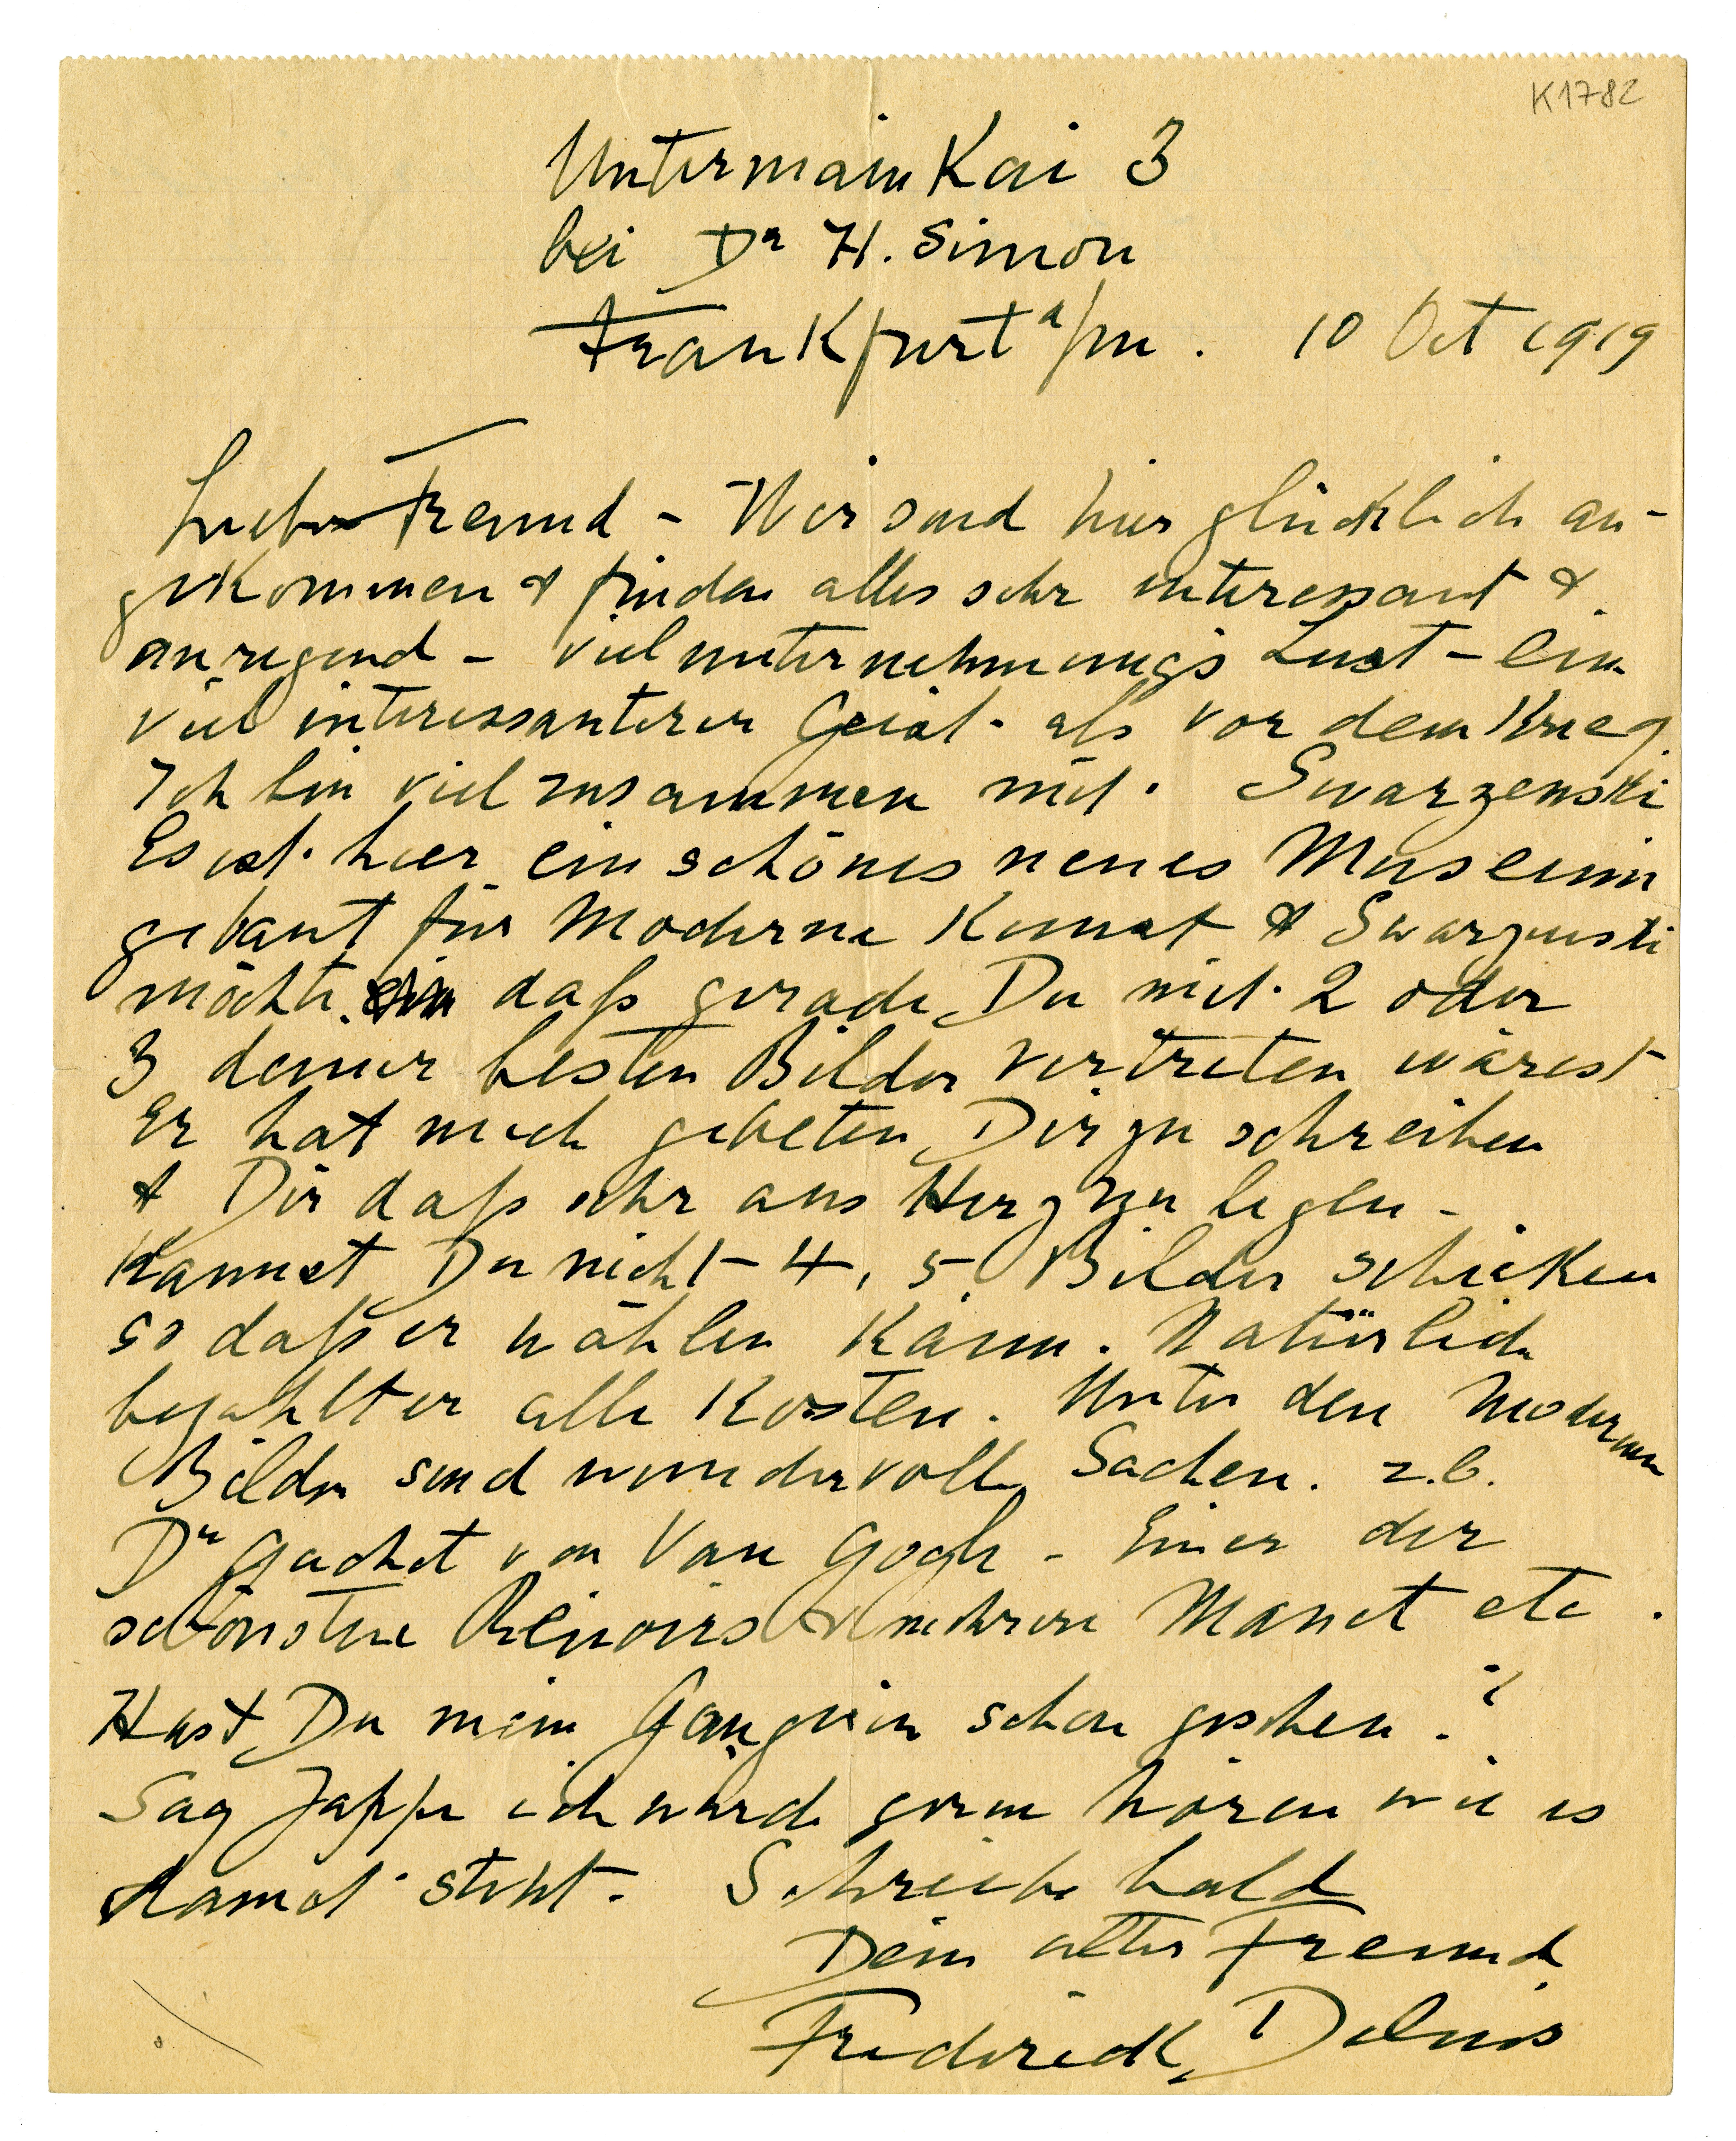 K1782
Untermain Kai 3
bei Dr H. Simon
Frankfurt a/m. 10 Oct 1919
Lieber Freund - Wir sind hier glücklich an-
gekommen & finden alles sehr interessant &
anregend - viel unternehmungs Lust - ein
viel interessanterer Geist als vor dem Krieg
Ich bin viel zusammen mit Swarzenski
Es ist hier ein schönes neues Museum
gebaut für Moderne Kunst & Swarzenski
möchte daß gerade Du mit 2 oder
3 deiner besten Bilder vertreten wärest
Er hat mich gebeten Dir zu schreiben
& Dir daß sehr ans Herz zu legen -
Kannst Du nicht 4, 5, Bilder schicken
so daß er wählen kann. Natürlich
bezahlt er alle Kosten. Unter den Modernen
Bilder sind wundervolle Sachen. z.b.
Dr Gachet von Van Gogh - Einer der
schönsten Renoirs & mehrere Manet etc.
Hast Du mein Gauguin schon gesehen?
Sag Jappe ich würde gerne hören wie es
damit steht. Schreibe bald
Dein alter Freund
Frederick Delius